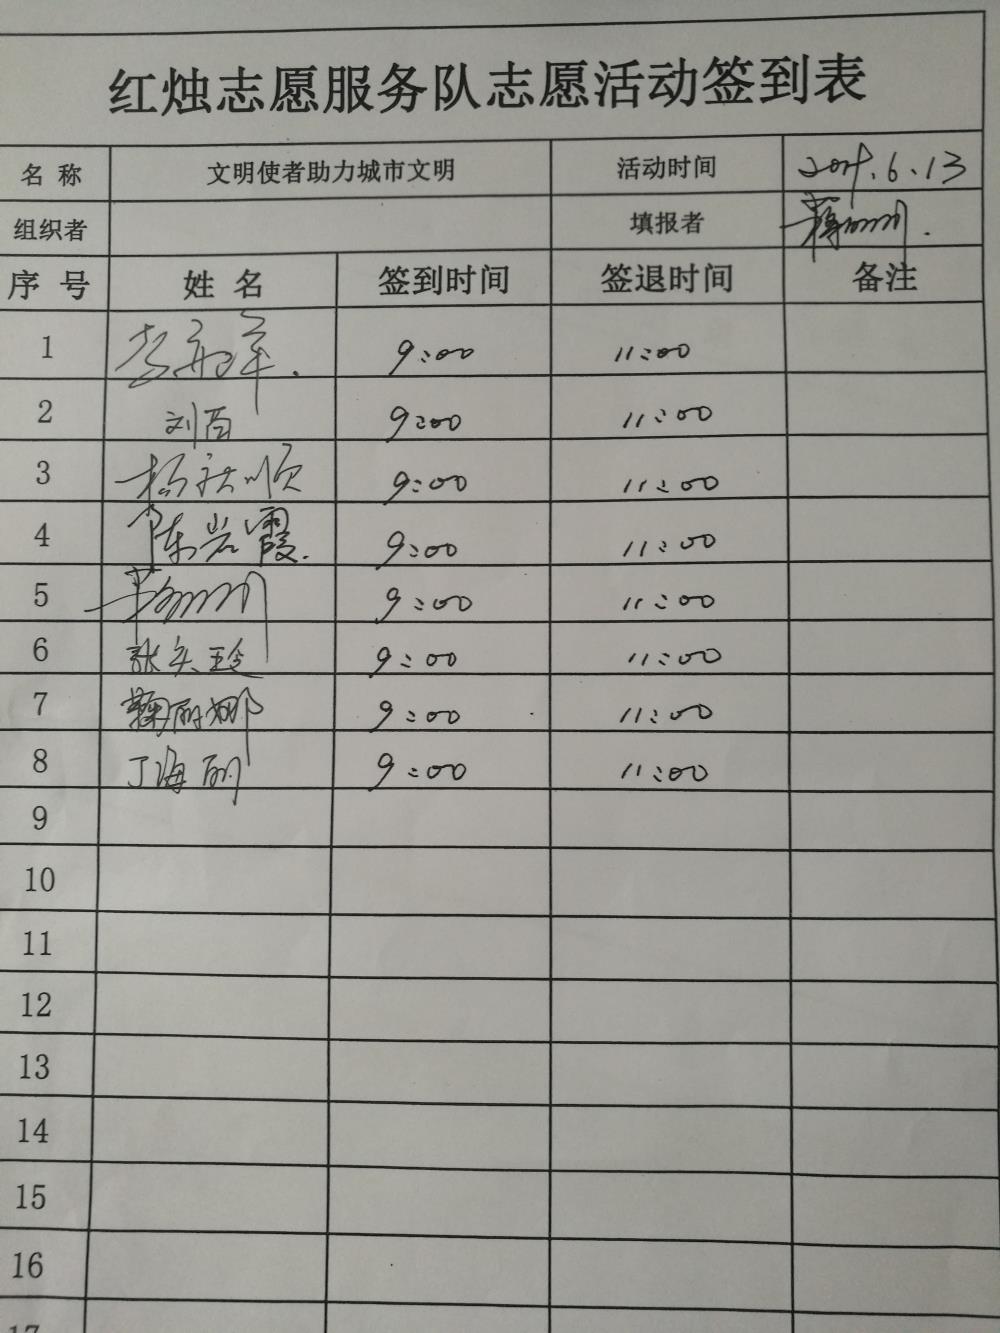 红烛志愿服务队志愿活动签到表
名 称 文明使者助力城市文明 活动时间 6.13
组织者 填报者
序 号 姓 名 签到时间 签退时间 备注
1 9:00 11:00
2 刘 9:00 11:00
3 杨 顺 9:00 11:00
4 陈岩霞. 9:00 11:00
5 9:00 11:00
6 张 玲 9:00 11:00
7 鞠丽娜 9:00 11:00
8 丁海丽 9:00 11:00
9
10
11
12
13
14
15
16
17